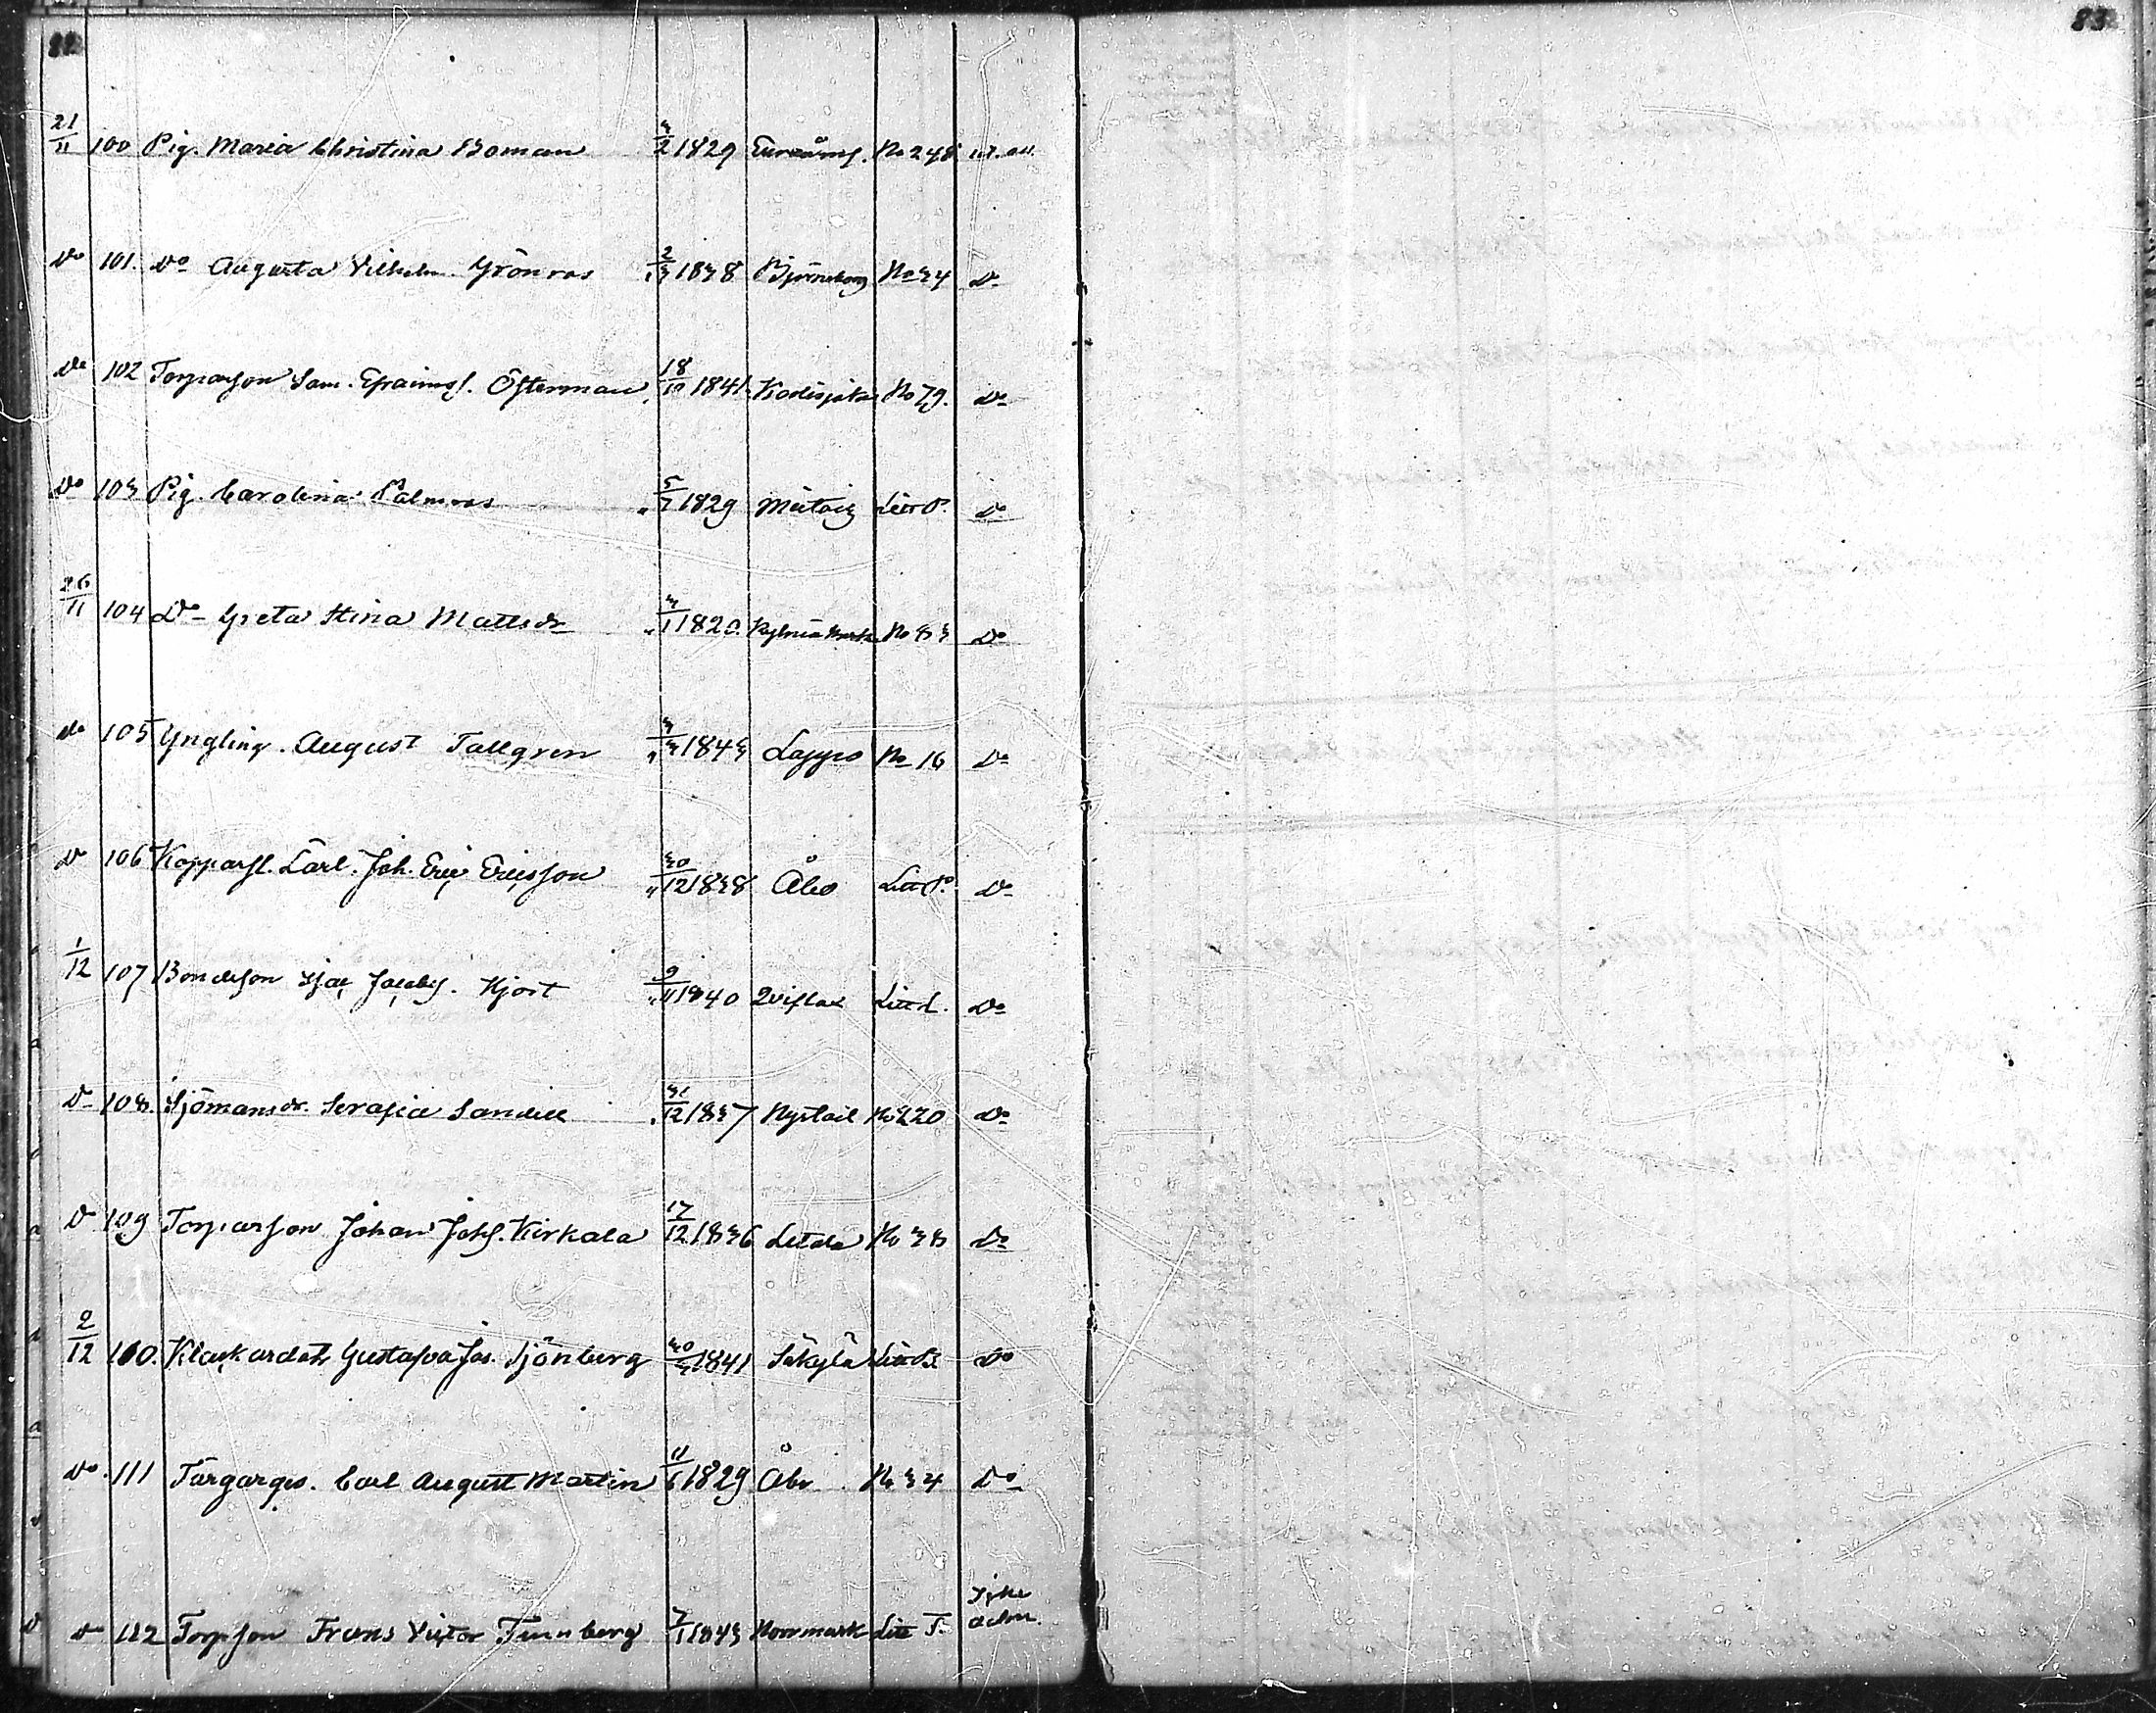 82
83
21/11 100 Pig. Maria Christina Boman 3/2 1829 Euraåms. No 248
Do 101. Do Augusta Vilhelm. Grönros 2/3 1838 Björneborg No 34 Do
Do 102 Torparson Sam. Efraimss. Österman 18/10 1841 Kodisjoki No 79. Do
Do 103 Pig. Carolina Palmros 5/7 1829 Litt P. Do
26/11 104 Do Greta Stina Mattsdr 3/1 1820. No 83 Do
Do 105 Yngling. August Tallgren 3/3 1843 Lappo No 16 Do
Do 106 Kopparsl. Lärl. Joh. Eric Ericsson 30/12 1838 Åbo Litt P. Do
1/12 107 Bondeson Isac Jacobs. Hjort 9/11 1840 Qviflax Litt L. Do
Do 108. Sjömansdr. Serafia Sandell 31/12 1837 Nystad No 220 Do
Do 109 Torparson Johan Johs. Kirkala 17/12 1836 Letala No 38 Do
2/12 110. Klockardotr Gustafva Jos. Sjönberg 30/3 1841 Säkylä Litt B. Do
Do 111 Färgarges. Carl August Martin 11/6 1829 Åbo No 34 Do
Do 112 Torpson Frans Victor 7/1 1843 Norrmark Litt T.